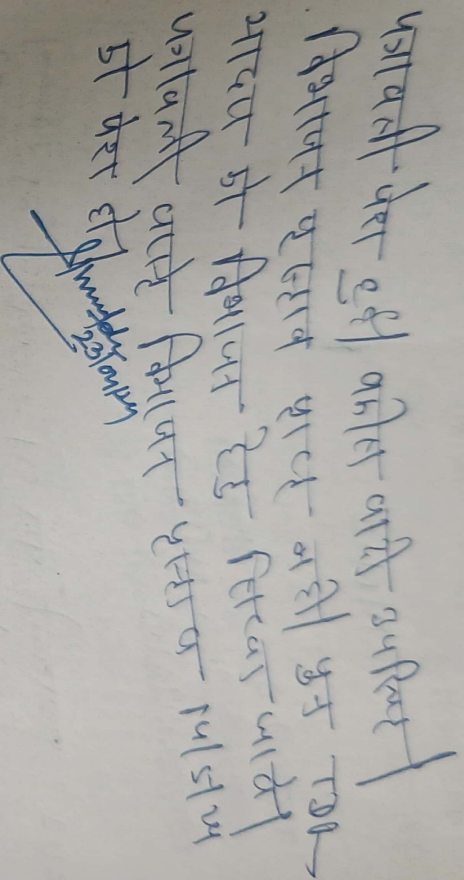 पत्रावली पेश हुई वकील वादी उपस्थित।
विभाजन प्रस्ताव प्राप्त नहीं पुनः TDR
भादरा को विभाजन हेतु लिखा जावे।
पत्रावली वास्ते विभाजन प्रस्ताव
को पेश हो